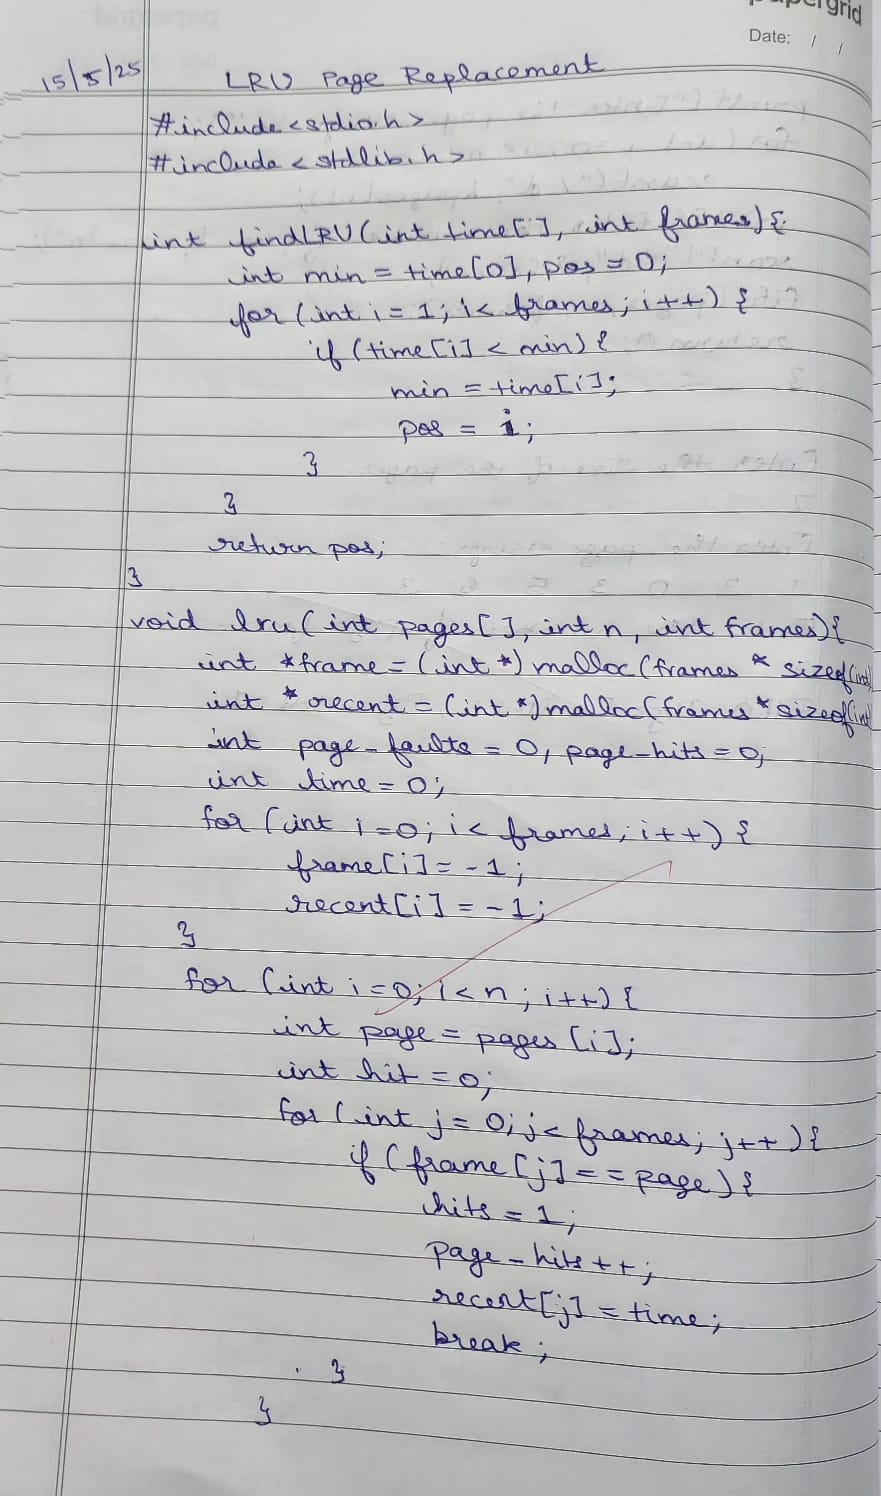 papergrid
Date: / /
15/5/25 LRU Page Replacement
#include <stdio.h>
#include <stdlib.h>
int findLRU(int time[], int frames){
int min = time[0], pos = 0;
for (int i = 1; i < frames; i++) {
if (time[i] < min) {
min = time[i];
pos = i;
}
}
return pos;
}
void lru(int pages[], int n, int frames){
int *frame = (int *) malloc (frames * sizeof(int)
int * recent = (int *) malloc (frames * sizeof(int
int page_faults = 0, page_hits = 0;
int time = 0;
for (int i = 0; i < frames; i++) {
frame[i] = -1;
recent[i] = -1;
}
for (int i = 0; i < n; i++) {
int page = pages [i];
int hit = 0;
for (int j = 0; j < frames; j++) {
if (frame [j] == page) {
hits = 1;
page_hits ++;
recent[j] = time;
break;
}
}